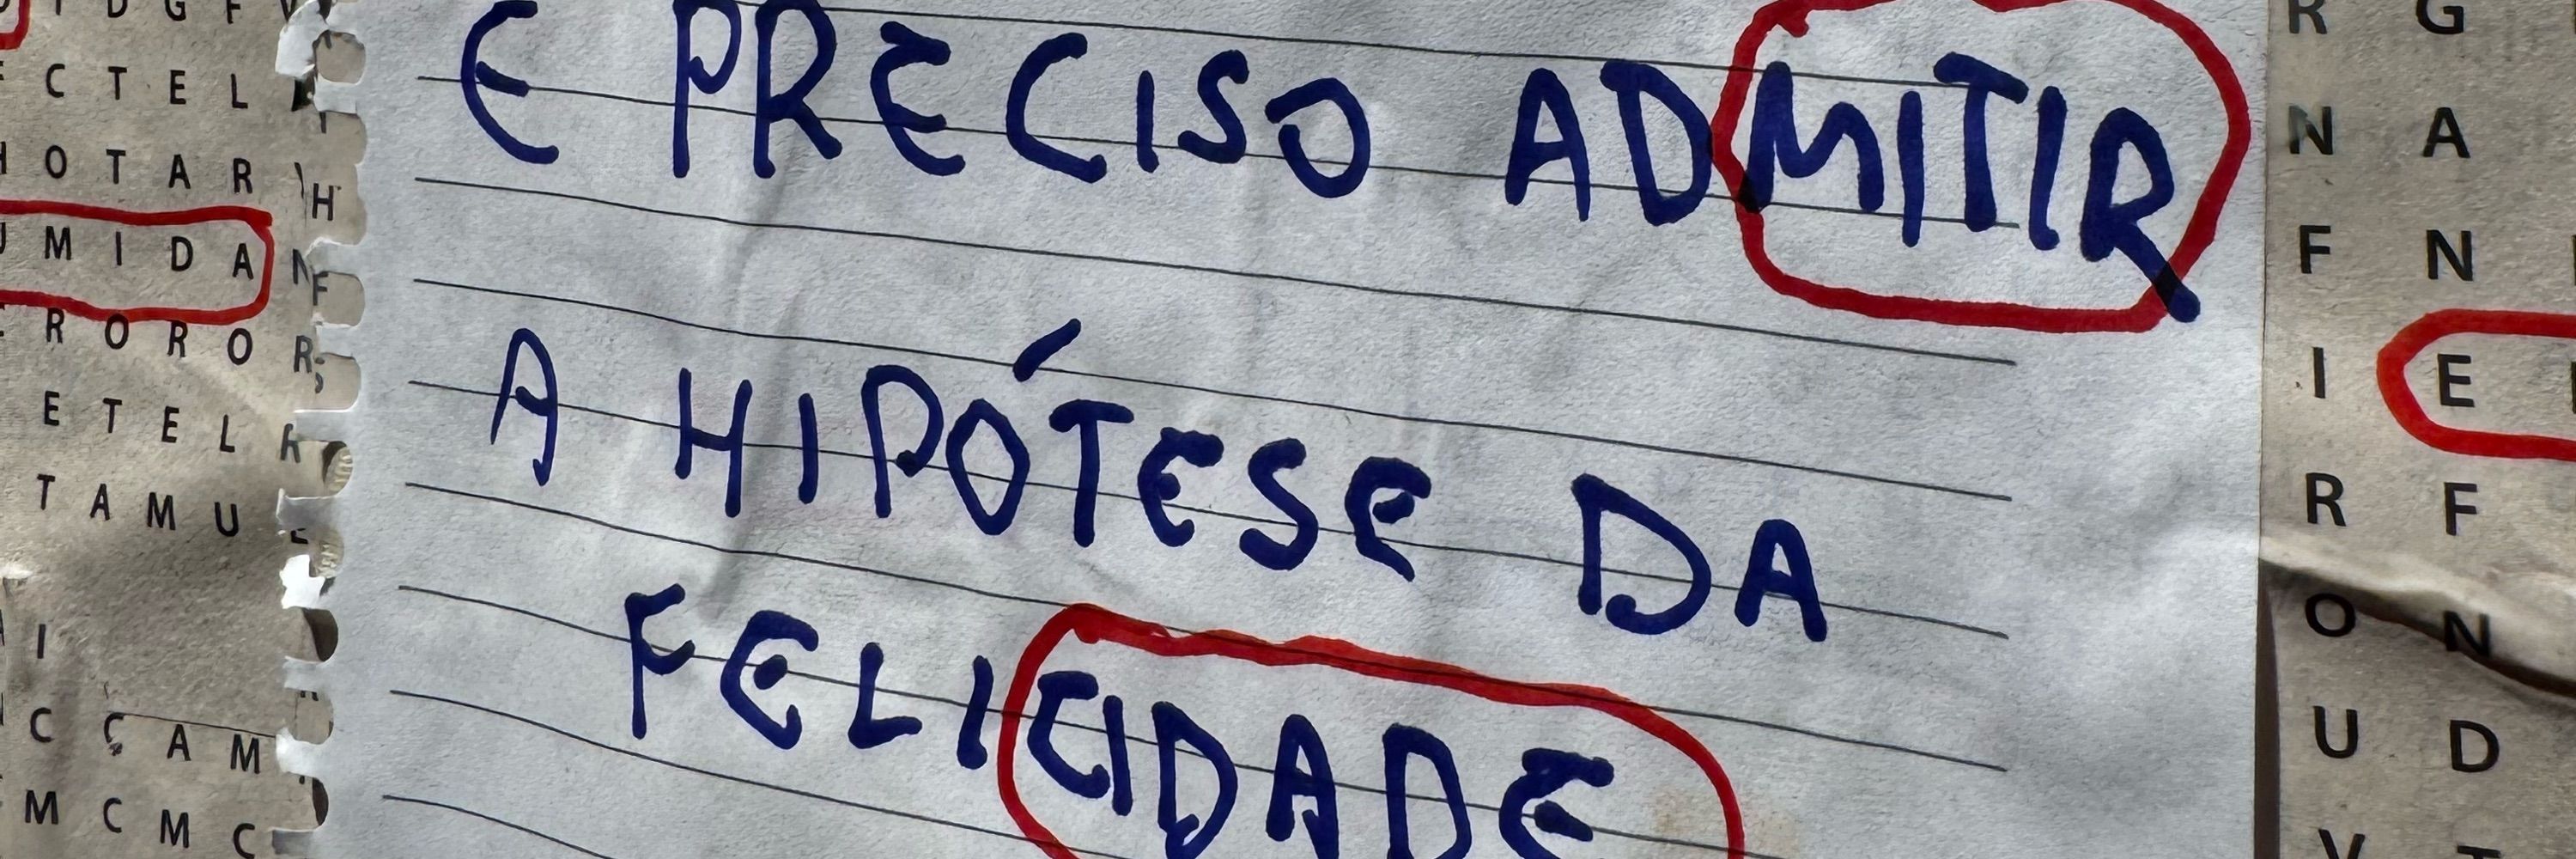 E PRECISO ADMITIR
A HIPÓTESE DA
FELICIDADE
C T E L
O T A R
M I D A
R O R O R
E T E L
T A M U
I
C Ç A M
M C M C
R G
N A
F N
I E
R F
O N
U D